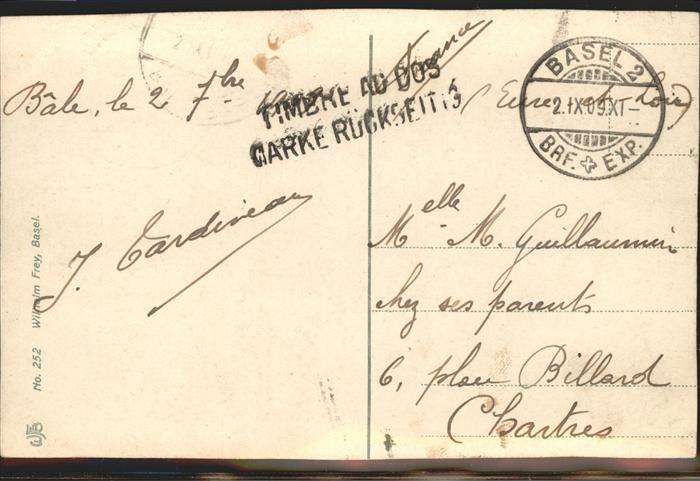 Bâle, le 2 7bre
TIMBRE AU DOS
MARKE RÜCKSEITIG
J. Tardiveau
No. 252 Wilhelm Frey, Basel.
France
(Eure et Loir)
BASEL 2
2.IX.09.XI
BRF. EXP.
Melle M. Guillaumin
chez ses parents
6, place Billard
Chartres